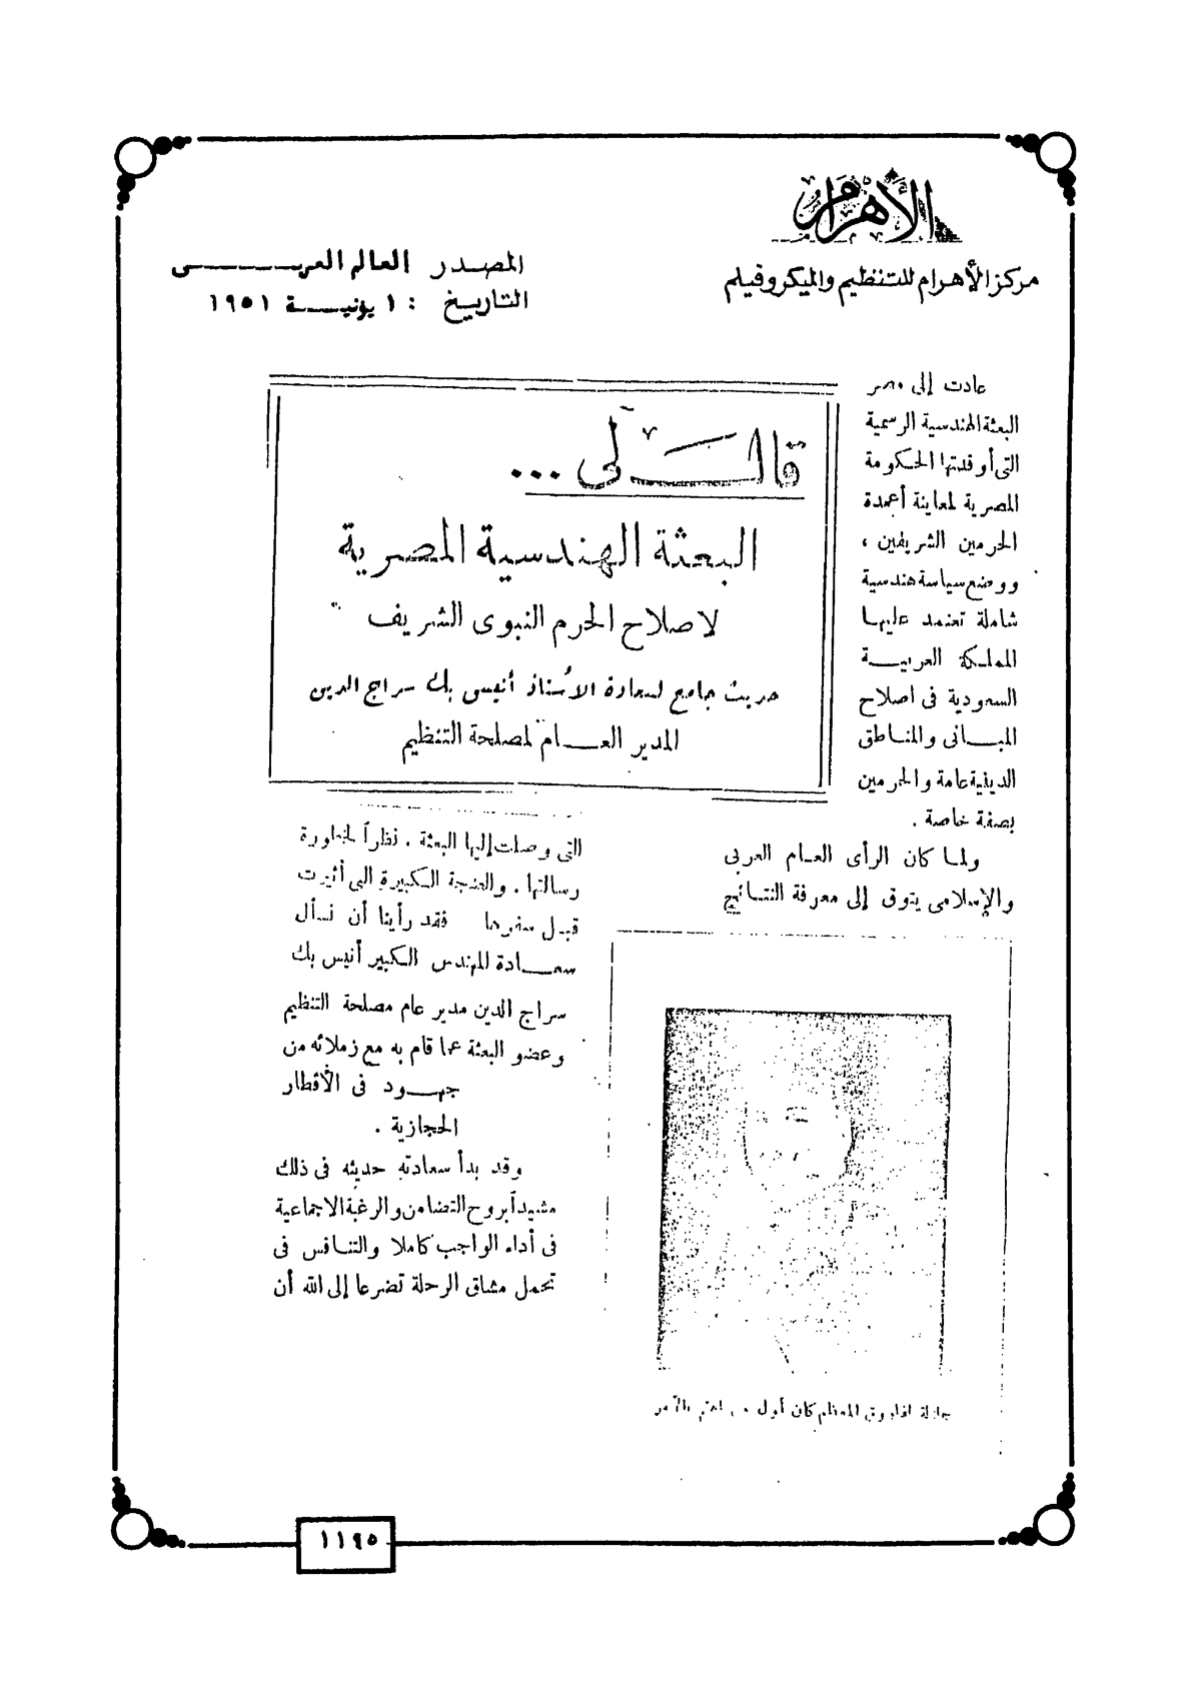 الأهرام
مركز الأهرام للتنظيم والميكروفيلم
المصدر العالم العربى
التاريخ : ١ يونية ١٩٥١
قالت لى ...
البعثة الهندسية المصرية
لاصلاح الحرم النبوى الشريف
حديث جامع لسعادة الأستاذ أنيس بك سراج الدين
المدير العام لمصلحة التنظيم
عادت إلى مصر
البعثة الهندسية الرسمية
التى أوفدتها الحكومة
المصرية لمعاينة أعمدة
الحرمين الشريفين ،
ووضع سياسة هندسية
شاملة تعتمد عليها
المملكة العربية
السعودية فى اصلاح
المبانى والمناطق
الدينية عامة والحرمين
بصفة خاصة .
ولما كان الرأى العام العربى
والإسلامى يتوق إلى معرفة النتائج
التى وصلت إليها البعثة ، نظراً لخطورة
رسالتها ، والضجة الكبيرة التى أثيرت
قبل سفرها فقد رأينا أن نسأل
سعادة المهندس الكبير أنيس بك
سراج الدين مدير عام مصلحة التنظيم
وعضو البعثة عما قام به مع زملائه من
جهود فى الأقطار
الحجازية .
وقد بدأ سعادته حديثه فى ذلك
مشيداً بروح التضامن والرغبة الاجماعية
فى أداء الواجب كاملا والتنافس فى
تحمل مشاق الرحلة تضرعا إلى الله أن
جلالة الفاروق المعظم كان أول من اهتم بالأمر
١١٩٥